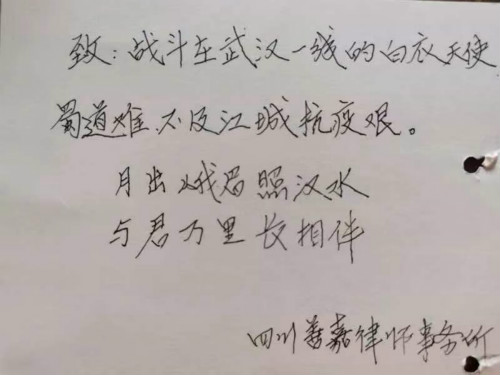 致：战斗在武汉一线的白衣天使
蜀道难、不及江城抗疫艰。
月出峨眉照汉水
与君万里长相伴
四川善嘉律师事务所